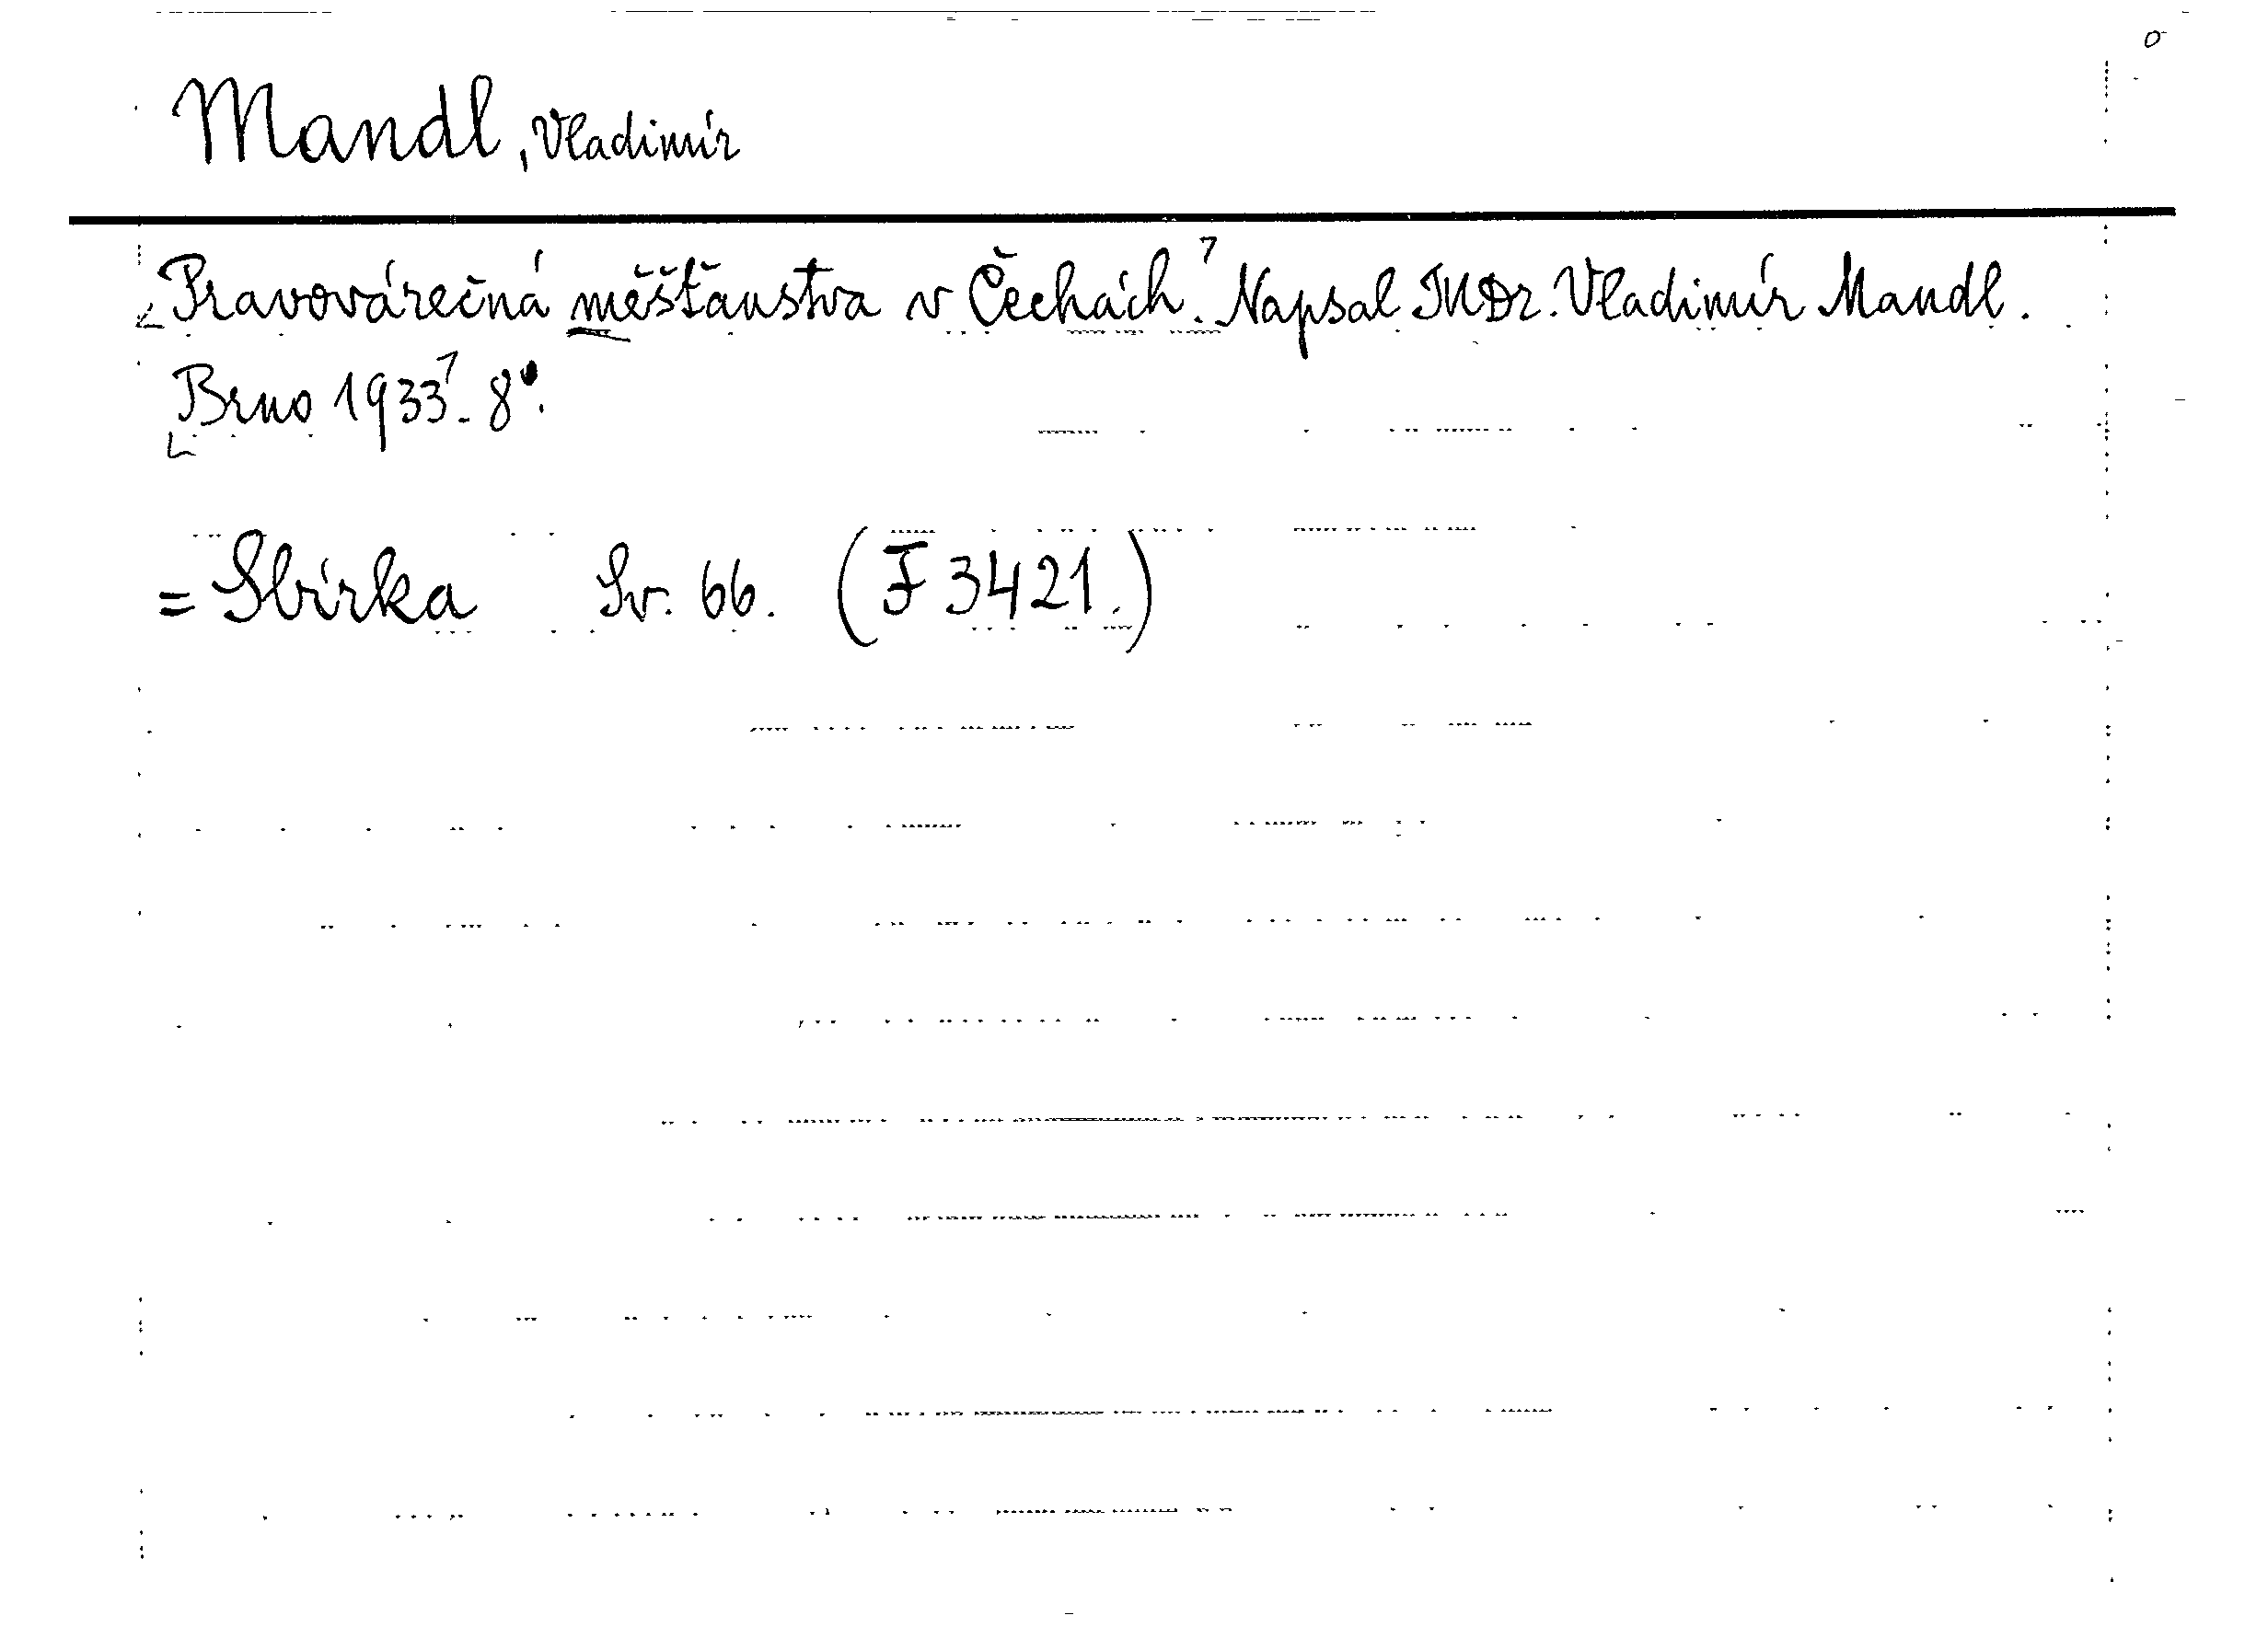 Mandl, Vladimír
Pravovárečná měšťanstva v Čechách. Napsal JUDr. Vladimír Mandl.
Brno 1933. 8°.
= Sbírka Sv. 66. (F 3421.)